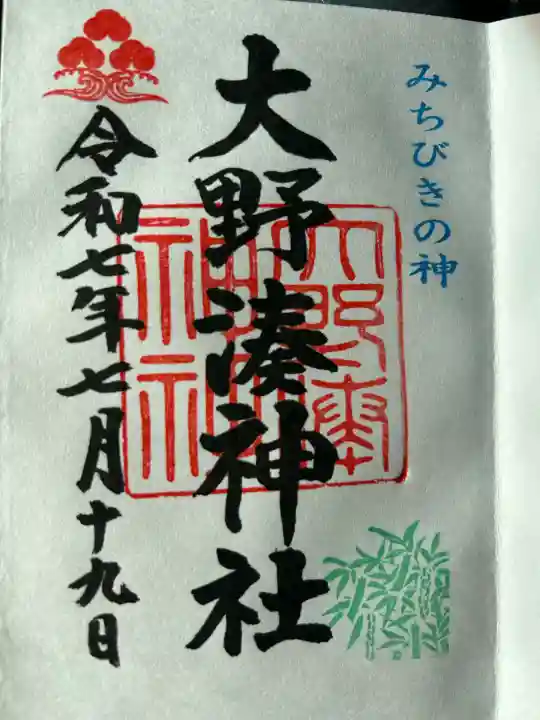 みちびきの神
大野湊神社
大野湊神社
令和七年七月十九日